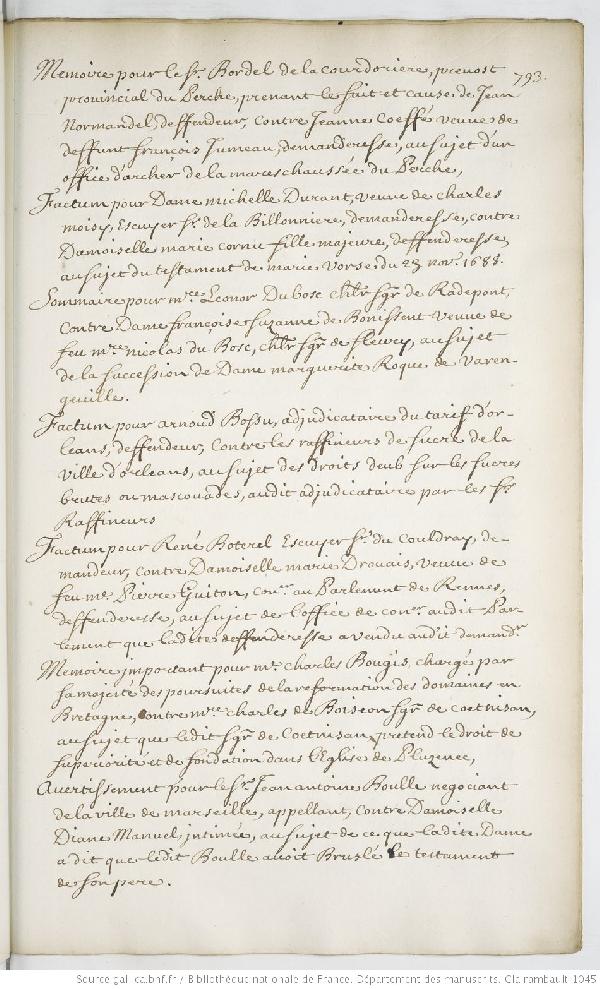 793.
Memoire pour le Sr. Bordel de la Courdoriere, prevost
provincial du Perche, prenant le fait et cause de Jean
Normandel, deffendeur, contre Jeanne Coeffé veuve de
deffunt françois Jumeau, demanderesse, au sujet d'un
office d'archer de la mareschaussée du Perche,
Factum pour Dame michelle Durant, veuve de charles
moisy, Escuyer Sr. de la Billonniere, demanderesse, contre
Damoiselle marie cornu fille majeure, deffenderesse,
au sujet du testament de marie Vorse du 23 nov. 1688.
Sommaire pour mre Leonor Dubosc chlr Sgr de Radepont,
contre Dame françoise Suzanne de Bonissent veuve de
feu mre nicolas du Bosc, chlr Sgr de fleury, au sujet
de la succession de Dame marguerite Roque de Varen-
gueville.
Factum pour arnoud Bossu, adjudicataire du tarif d'or-
leans, deffendeur, contre les raffineurs de sucre de la
ville d'orleans, au sujet des droits deub sur les sucres
brutes ou mascouades, audit adjudicataire par les Srs
Raffineurs
Factum pour René Boterel Escuyer Sr. du Couldray, de-
mandeur, contre Damoiselle marie Drouais, veuve de
feu me Pierre Guiton, conr. au Parlement de Rennes,
deffenderesse, au sujet de l'office de conr. audit Par-
lement que ladite deffenderesse a vendu audit demandr
Memoire important pour mr. charles Bougis, chargé par
sa majesté des poursuites de la reformation des domaines en
Bretagne, contre mre charles de Boiseon Sgr de coetnisan,
au sujet que ledit Sgr de Coetnisan pretend le droit de
superiorité et de fondation dans l'Eglise de Pluzenec,
Avertissement pour le Sr. Jean antoine Boulle negociant
de la ville de marseille, appellant, contre Damoiselle
Diane Manuel, intimée, au sujet de ce que ladite Dame
a dit que ledit Boulle avoit Bruslé le testament
de son pere.
Source gallica.bnf.fr / Bibliothèque nationale de France. Département des manuscrits. Clairambault 1045